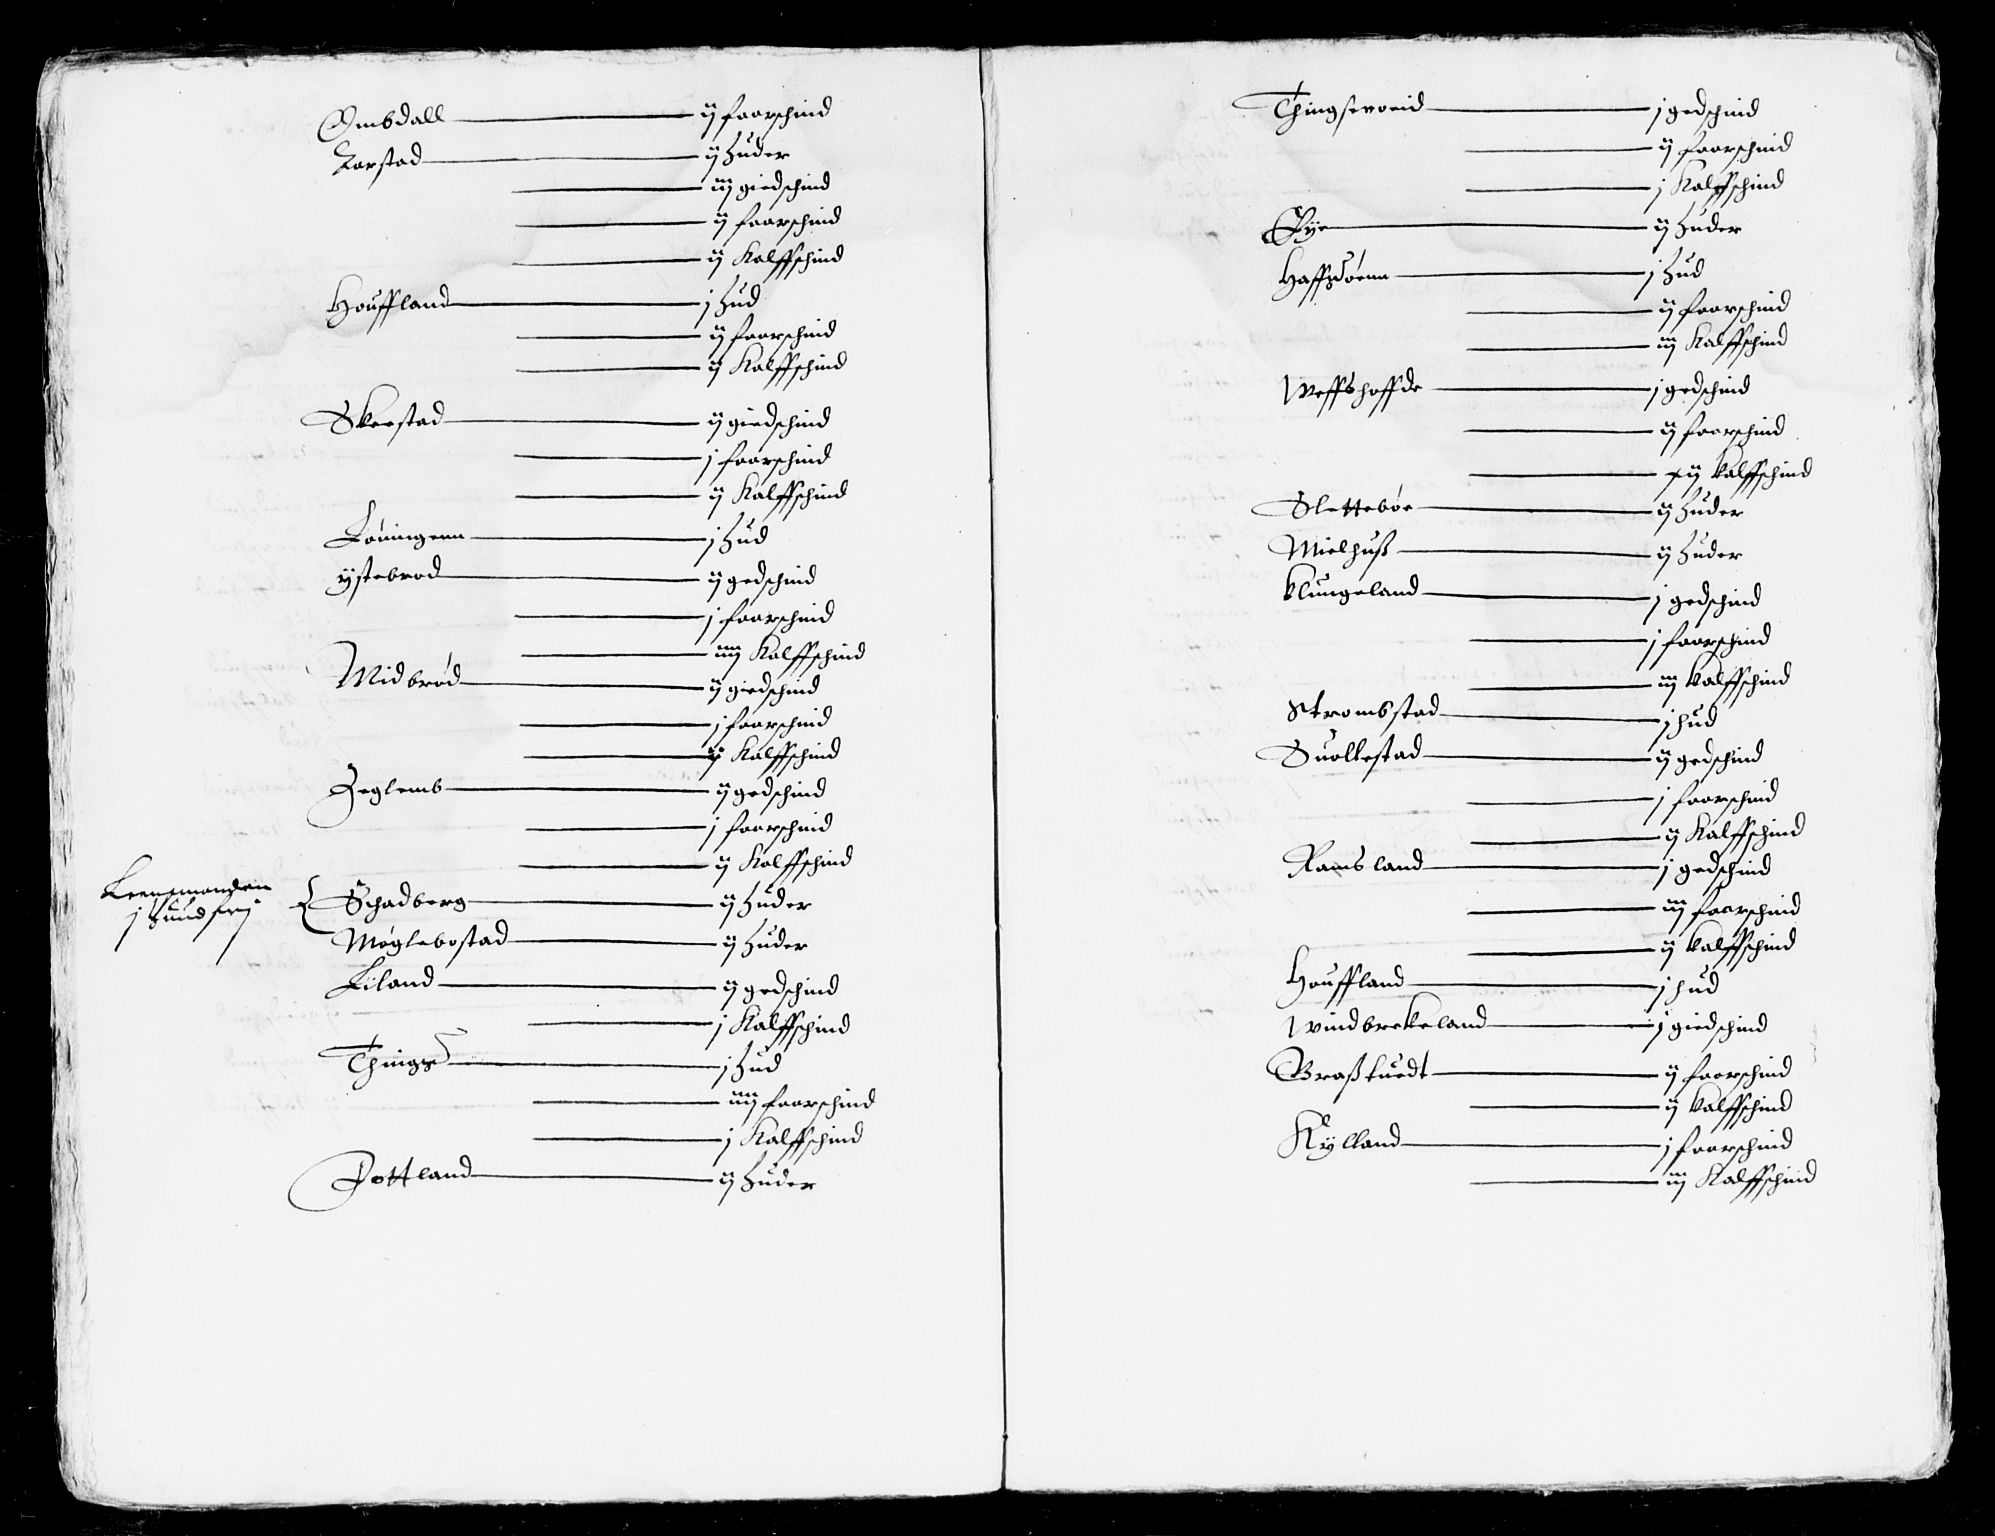 Ombdall ij faarschind
Karstad ij huder
iij giedschind
ij faarschind
ij Kalffschind
Houffland j hud
ij faarschind
ij Kalffschind
Skerstad ij giedschind
j faarschind
ij Kalffschind
Lóuingenn j hud
ÿstebrod ij gedschind
j faarschind
iiij Kalffschind
Midbród ij giedschind
j faarschind
ij Kalffschind
Heglemb ij gedschind
j faarschind
ij Kalffschind
Leensmanden
j huud frij
Schadberg ij huder
Móglebostad ij huder
Liland ij gedschind
j Kalffschind
Things j hud
iiij faarschind
j Kalffschind
Jottland ij huder
Thingseuoeid j gedschind
ij faarschind
j Kalffschind
Øye ij huder
Haffsóenn j hud
ij faarschind
iij Kalffschind
Weffshoffde j gedschind
ij faarschind
ij kalffschind
Slettebóe ij huder
Mielhuß ij huder
Klungeland j gedschind
j faarschind
iij kalffschind
Strombstad j hud
Suolkestad ij gedschind
j faarschind
ij Kalffschind
Ramsland j gedschind
iij faarschind
ij kalffschind
Houffland j hud
Windbrekeland j giedschind
Graßtuedt ij faarschind
ij kalffschind
Kÿlland j faarschind
iij Kalffschind